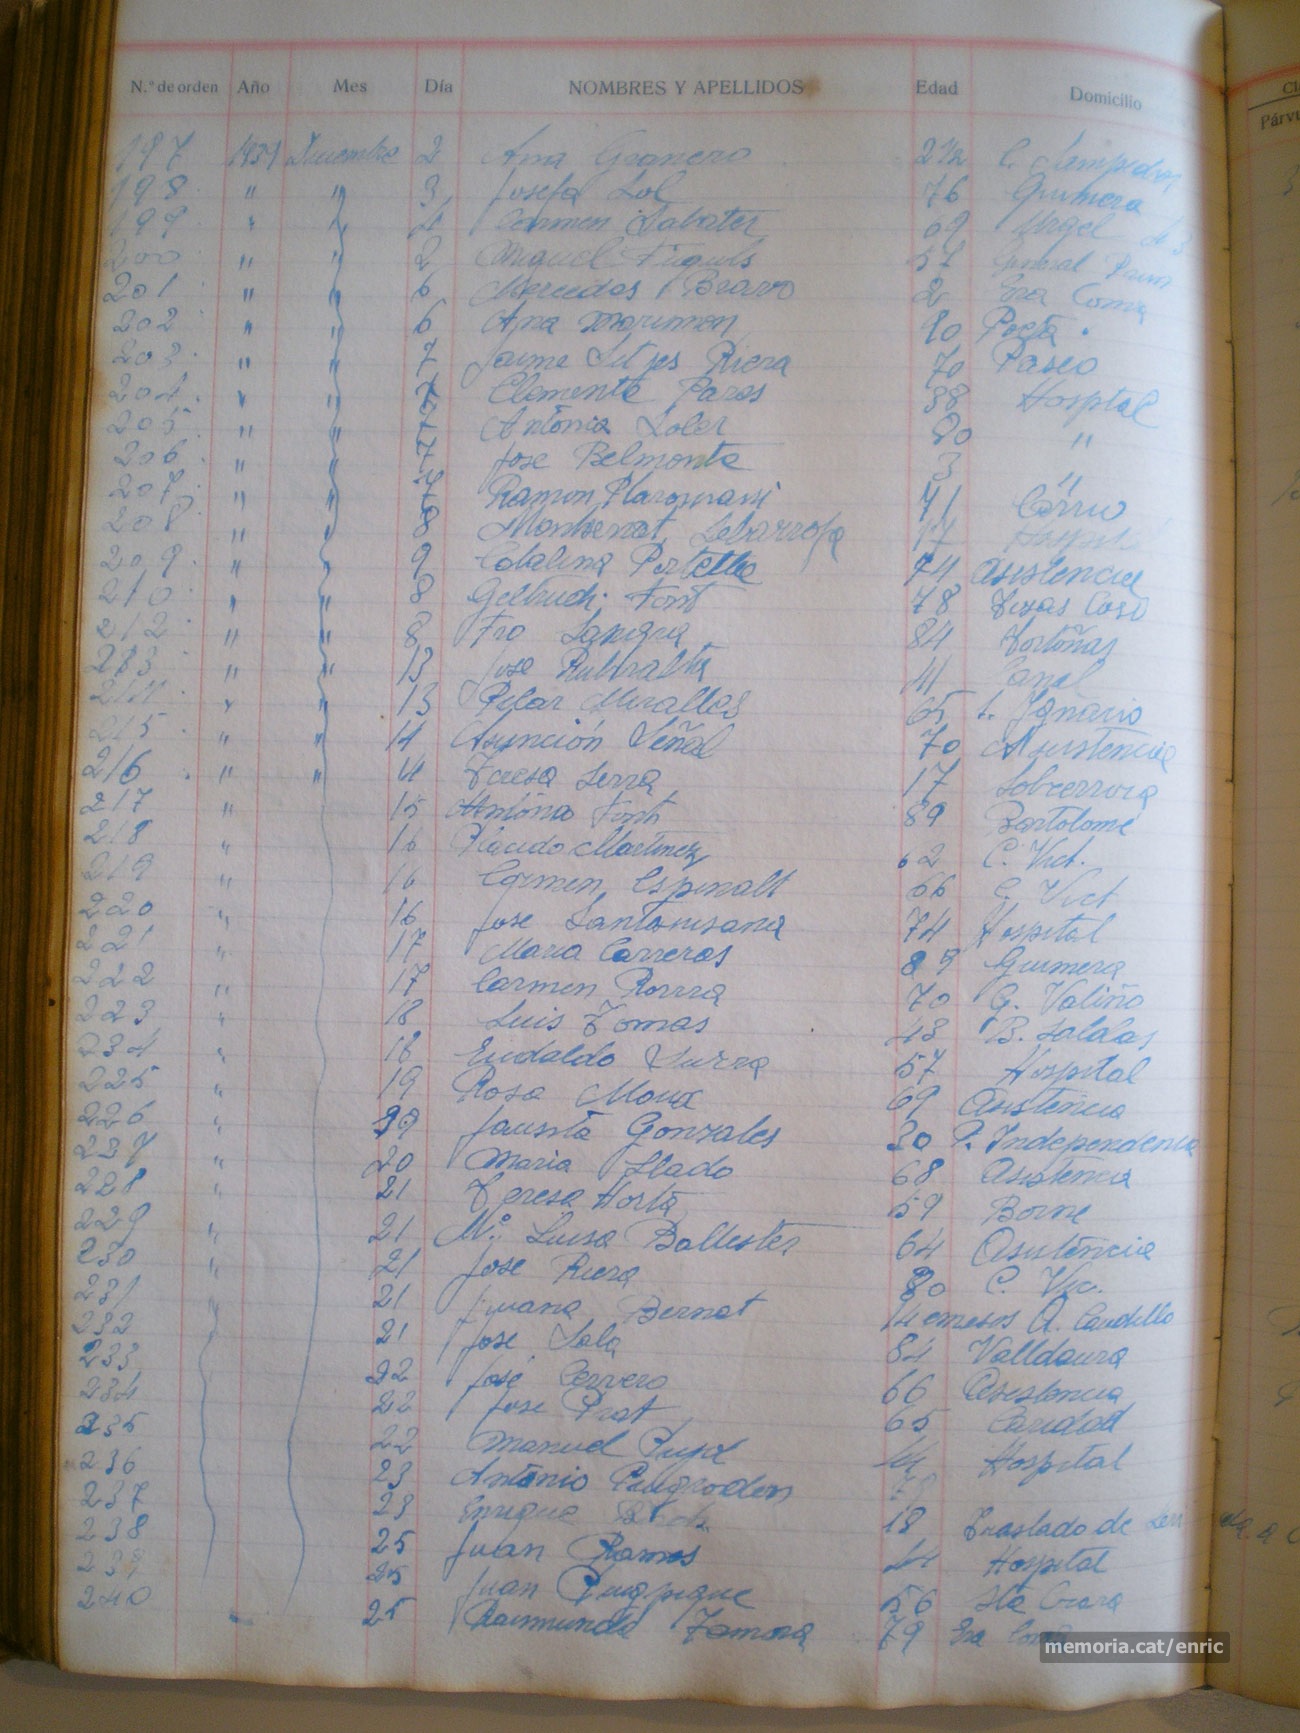 N.º de orden Año Mes Día NOMBRES Y APELLIDOS Edad Domicilio
Párvu
197 1939 Diciembre 2 Ana Granero 2½ C. Sampedro
198 " " 3 Josefa Sol 76 Guimera
199 " " 4 Carmen Sabater 69 Urgel
200 " " 2 Miguel 57 General Prim
201 " " 6 Mercedes Bravo 2 Era Coma
202 " " 6 Ana Marimon 80 Poeta
203 " " 7 Jaime Sitjes Riera 70 Paseo
204 " " 7 Clemente Pares 38 Hospital
205 " " 7 Antónia Soler 80 "
206 " " 7 Jose Belmonte 3 "
207 " " 7 Ramon 41
208 " " 8 Montserrat 17 Hospital
209 " " 9 Catalina Portella 74 Asistencia
210 " " 8 Font 78
212 " " 8 Fro 84
213 " " 13 Jose Rubiralta 41 Canal
214 " " 13 Pilar Miralles 65 S. Ignacio
215 " " 14 Asunción Señal 70 Asistencia
216 " " 14 Teresa Serra 17 Sobrerroca
217 " 15 Antónia Font 89 Bartolome
218 " 16 Placido Martinez 62 C. Vict.
219 " 16 Carmen Espinalt 66 C. Vict
220 " 16 Jose Santamaria 74 Hospital
221 " 17 Maria Carreras 89 Guimera
222 " 17 Carmen 70 G. Valiño
223 " 18 Luis Tomas 48 B. Saldas
234 " 18 Eudaldo 57 Hospital
225 " 19 Rosa 69 Asistencia
226 " 19 Fausta Gonzales 30 P. Independencia
227 " 20 Maria Llado 68 Asistencia
228 " 21 Teresa Horta 59 Borne
229 " 21 Mª Luisa Ballester 64 Asistencia
230 " 21 Jose Riera 80 C. Vic.
231 21 Juana Bernat 14 meses A. Caudillo
232 21 Jose Sala 84 Valldaura
233 22 José Cervero 66 Asistencia
234 22 Jose Prat 65 Caridad
235 22 Manuel Hospital
236 23 Antonio Puigrodon
237 23 Enrique 18 Traslado de
238 25 Juan Ramos 44 Hospital
239 25 Juan Puigpique 56 Sta Clara
240 25 Raimunda Zamora 79 Era Coma
memoria.cat/enric